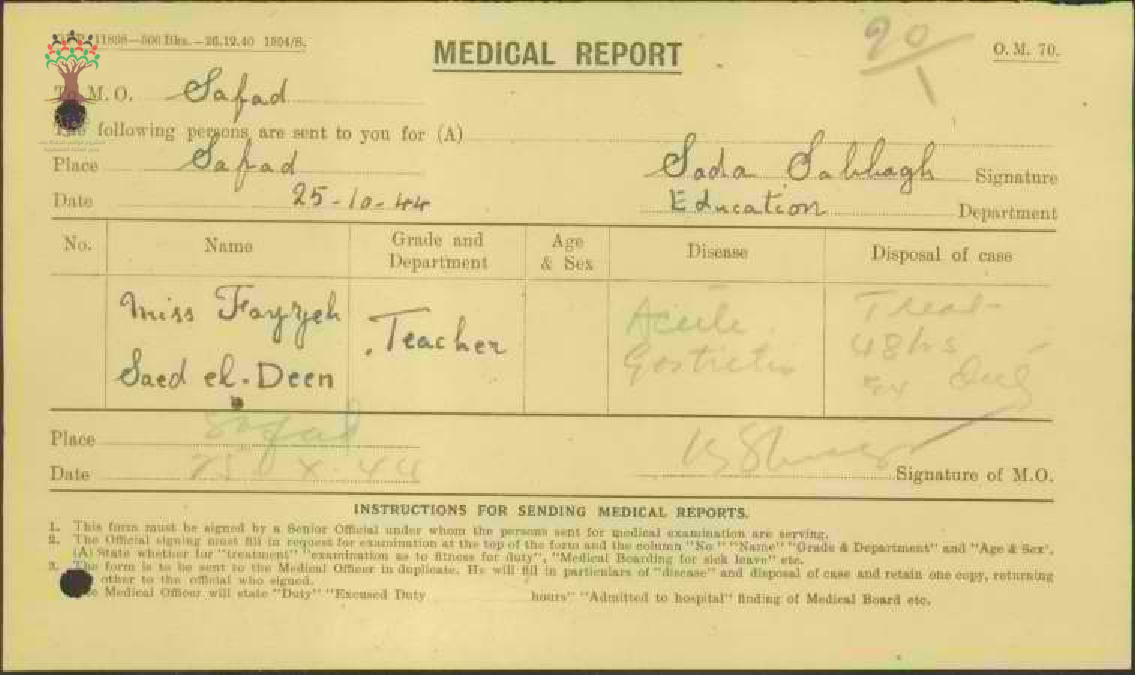 11898—500 Bks.—26.12.40 1504/S.
MEDICAL REPORT
90/1
O. M. 70.
To M. O. Safad
The following persons are sent to you for (A)
Place Safad
Sada Sabbagh Signature
Date 25-10-44
Education Department
No. Name Grade and Department Age & Sex Disease Disposal of case
Miss Fayzeh Saed el-Deen Teacher Acute Gastritis Treat 48 hs Duty
Place Safad
Date 25 X. 44
Signature of M.O.
INSTRUCTIONS FOR SENDING MEDICAL REPORTS.
1. This form must be signed by a Senior Official under whom the persons sent for medical examination are serving.
2. The Official signing must fill in request for examination at the top of the form and the column "No" "Name" "Grade & Department" and "Age & Sex".
(A) State whether for "treatment" "examination as to fitness for duty", "Medical Boarding for sick leave" etc.
3. The form is to be sent to the Medical Officer in duplicate. He will fill in particulars of "disease" and disposal of case and retain one copy, returning
other to the official who signed.
Medical Officer will state "Duty" "Excused Duty hours" "Admitted to hospital" finding of Medical Board etc.